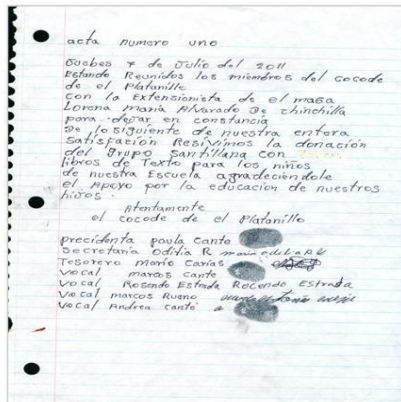 acta numero uno
Juebes 7 de Julio del 2011
Estando Reunidos los miembros del cocode
de el Platanillo
con la Extensionista de el maga
Lorena maria Alvarado De chinchilla
para dejar en constancia
De lo siguiente de nuestra entera
Satisfacion Resivimos la donación
del Grupo Santillana con
libros de Texto para los niños
de nuestra Escuela agradeciendole
el Apoyo por la educación de nuestros
hijos.
Atentamente
el cocode de el Platanillo
precidenta paula Cante
Secretaria Odilia R
Tesorero Mario Carias
Vocal marcos cante
Vocal Rosendo Estrada Rocendo Estrada
Vocal marcos Ruano
Vocal Andrea cante